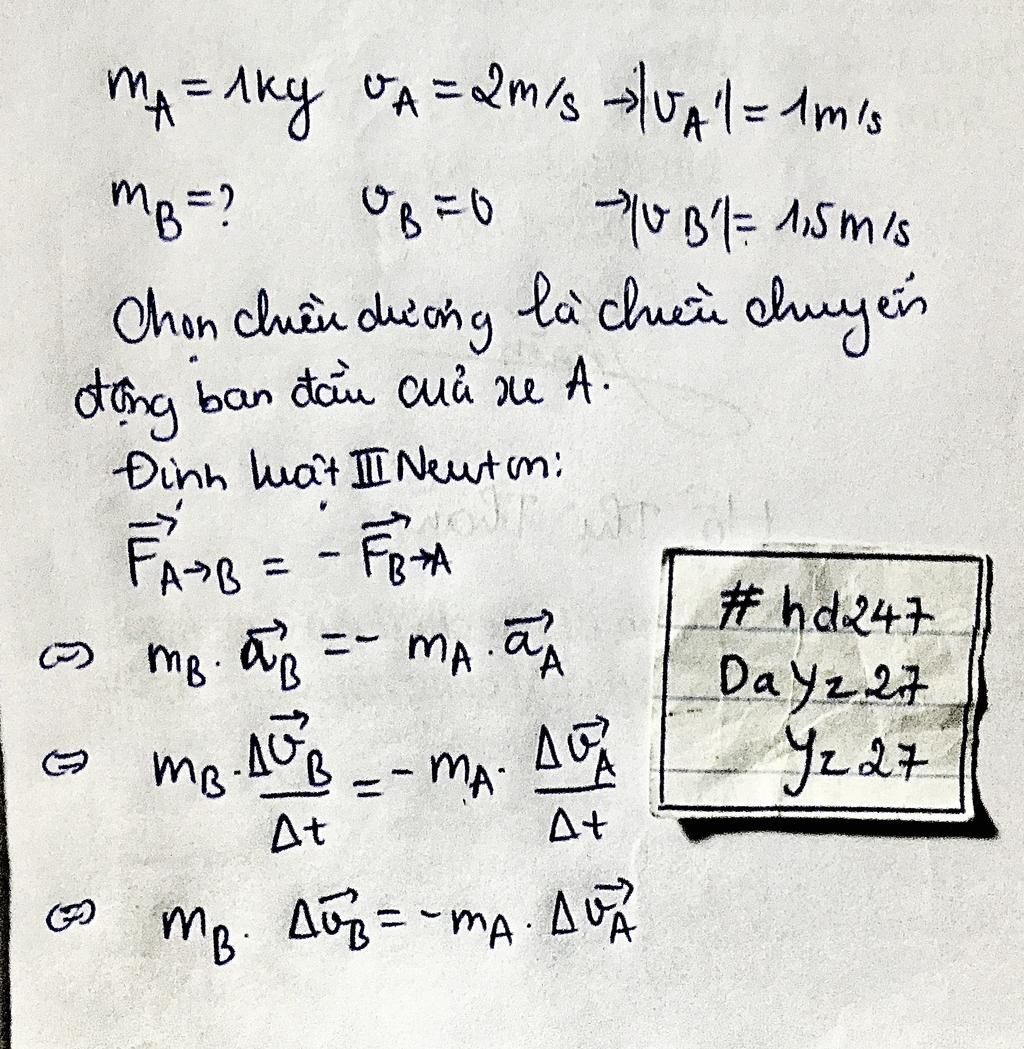 m_A = 1kg v_A = 2m/s →|v_A'| = 1m/s
m_B = ? v_B = 0 →|v_B'| = 1,5m/s
Chọn chiều dương là chiều chuyển
động ban đầu của xe A.
Định luật III Newton:
F⃗_A→B = - F⃗_B→A
⇔ m_B . a⃗_B = - m_A . a⃗_A
⇔ m_B . Δv⃗_B/Δt = - m_A . Δv⃗_A/Δt
⇔ m_B . Δv⃗_B = - m_A . Δv⃗_A
# hd247
Da Yz 27
Yz 27